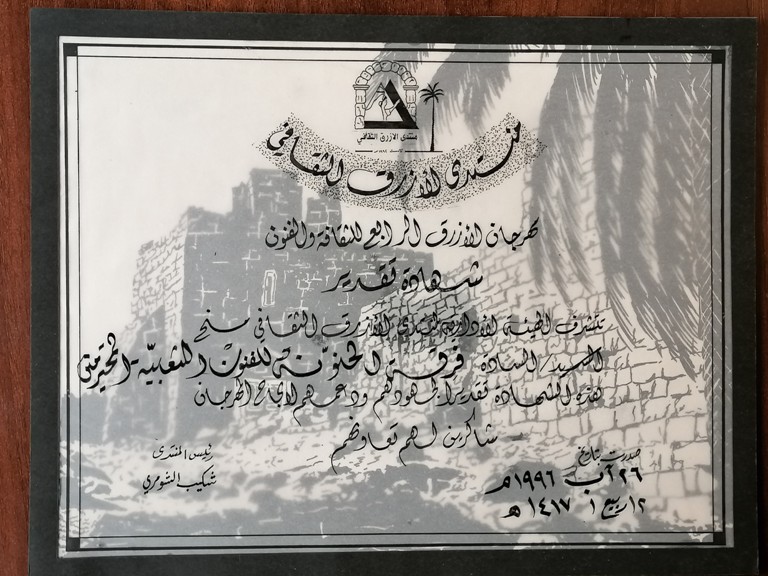 منتدى الأزرق الثقافي
منتدى الأزرق الثقافي
مهرجان الأزرق الرابع للثقافة والفنون
شهادة تقدير
تتشرف الهيئة الادارية لمنتدى الأزرق الثقافي بمنح
السيد/السادة فرقة الحنونة للفنون الشعبية المحترمين
هذه الشهادة تقديراً لجهودكم ودعمهم لانجاح المهرجان
شاكرين لهم تعاونهم
رئيس المنتدى
شكيب الشومري
صدرت بتاريخ
٢٦ آب ١٩٩٦م
١٢ ربيع ١ ١٤١٧ هـ